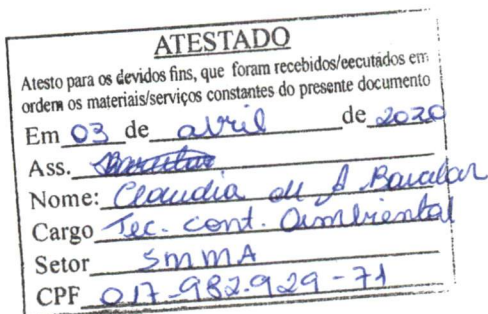 ATESTADO
Atesto para os devidos fins, que foram recebidos/eecutados em
ordem os materiais/serviços constantes do presente documento
Em 03 de abril de 2020
Ass.
Nome: Claudia de A Bacelar
Cargo Tec. cont. Ambiental
Setor SMMA
CPF 017-982.929-71